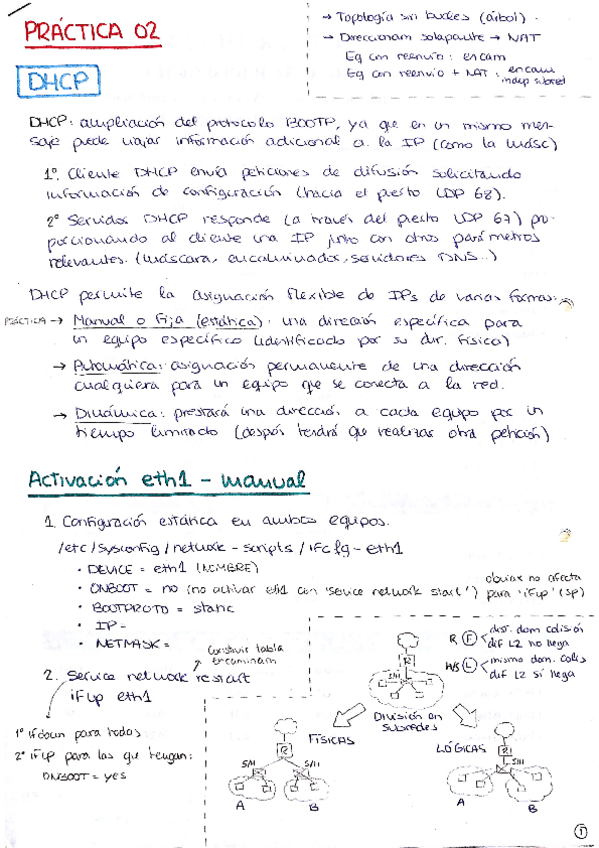 PRÁCTICA 02
→ Topología sin bucles (árbol).
→ Direccionam solapante → NAT
Eq con reenvío: encam
Eq con reenvío + NAT: encam
indep subred
DHCP
DHCP: ampliación del protocolo BOOTP, ya que en un mismo men-
saje puede viajar información adicional a la IP (como la másc)
1º. Cliente DHCP envía peticiones de difusión solicitando
información de configuración (hacia el puerto UDP 68).
2º Servidor DHCP responde (a través del puerto UDP 67) pro-
porcionando al cliente una IP junto con otros parámetros
relevantes. (máscara, encaminador, servidores DNS...)
DHCP permite la asignación flexible de IPs de varias formas:
PRÁCTICA → Manual o fija (estática): una dirección específica para
un equipo específico (identificado por su dir. física)
→ Automática: asignación permanente de una dirección
cualquiera para un equipo que se conecta a la red.
→ Dinámica: prestará una dirección a cada equipo por un
tiempo limitado (después tendrá que realizar otra petición)
Activación eth1 - manual
1. Configuración estática en ambos equipos.
/etc/sysconfig/network-scripts/ifcfg-eth1
• DEVICE = eth1 (NOMBRE)
• ONBOOT = no (no activar eth1 con 'service network start')
obviar no afecta
para 'ifup' (sp)
• BOOTPROTO = static
• IP-
• NETMASK =
construir tabla
encaminam
2. Service network restart
ifup eth1
1º ifdown para todos
2º ifup para las que tengan:
ONBOOT = yes
R (F) dist. dom colisión
dif L2 no llega
H/S (L) mismo dom. colis
dif L2 sí llega
R
S/H
División en
subredes
FÍSICAS
LÓGICAS
R
S/H
S/H
A
B
R
S/H
A
B
1